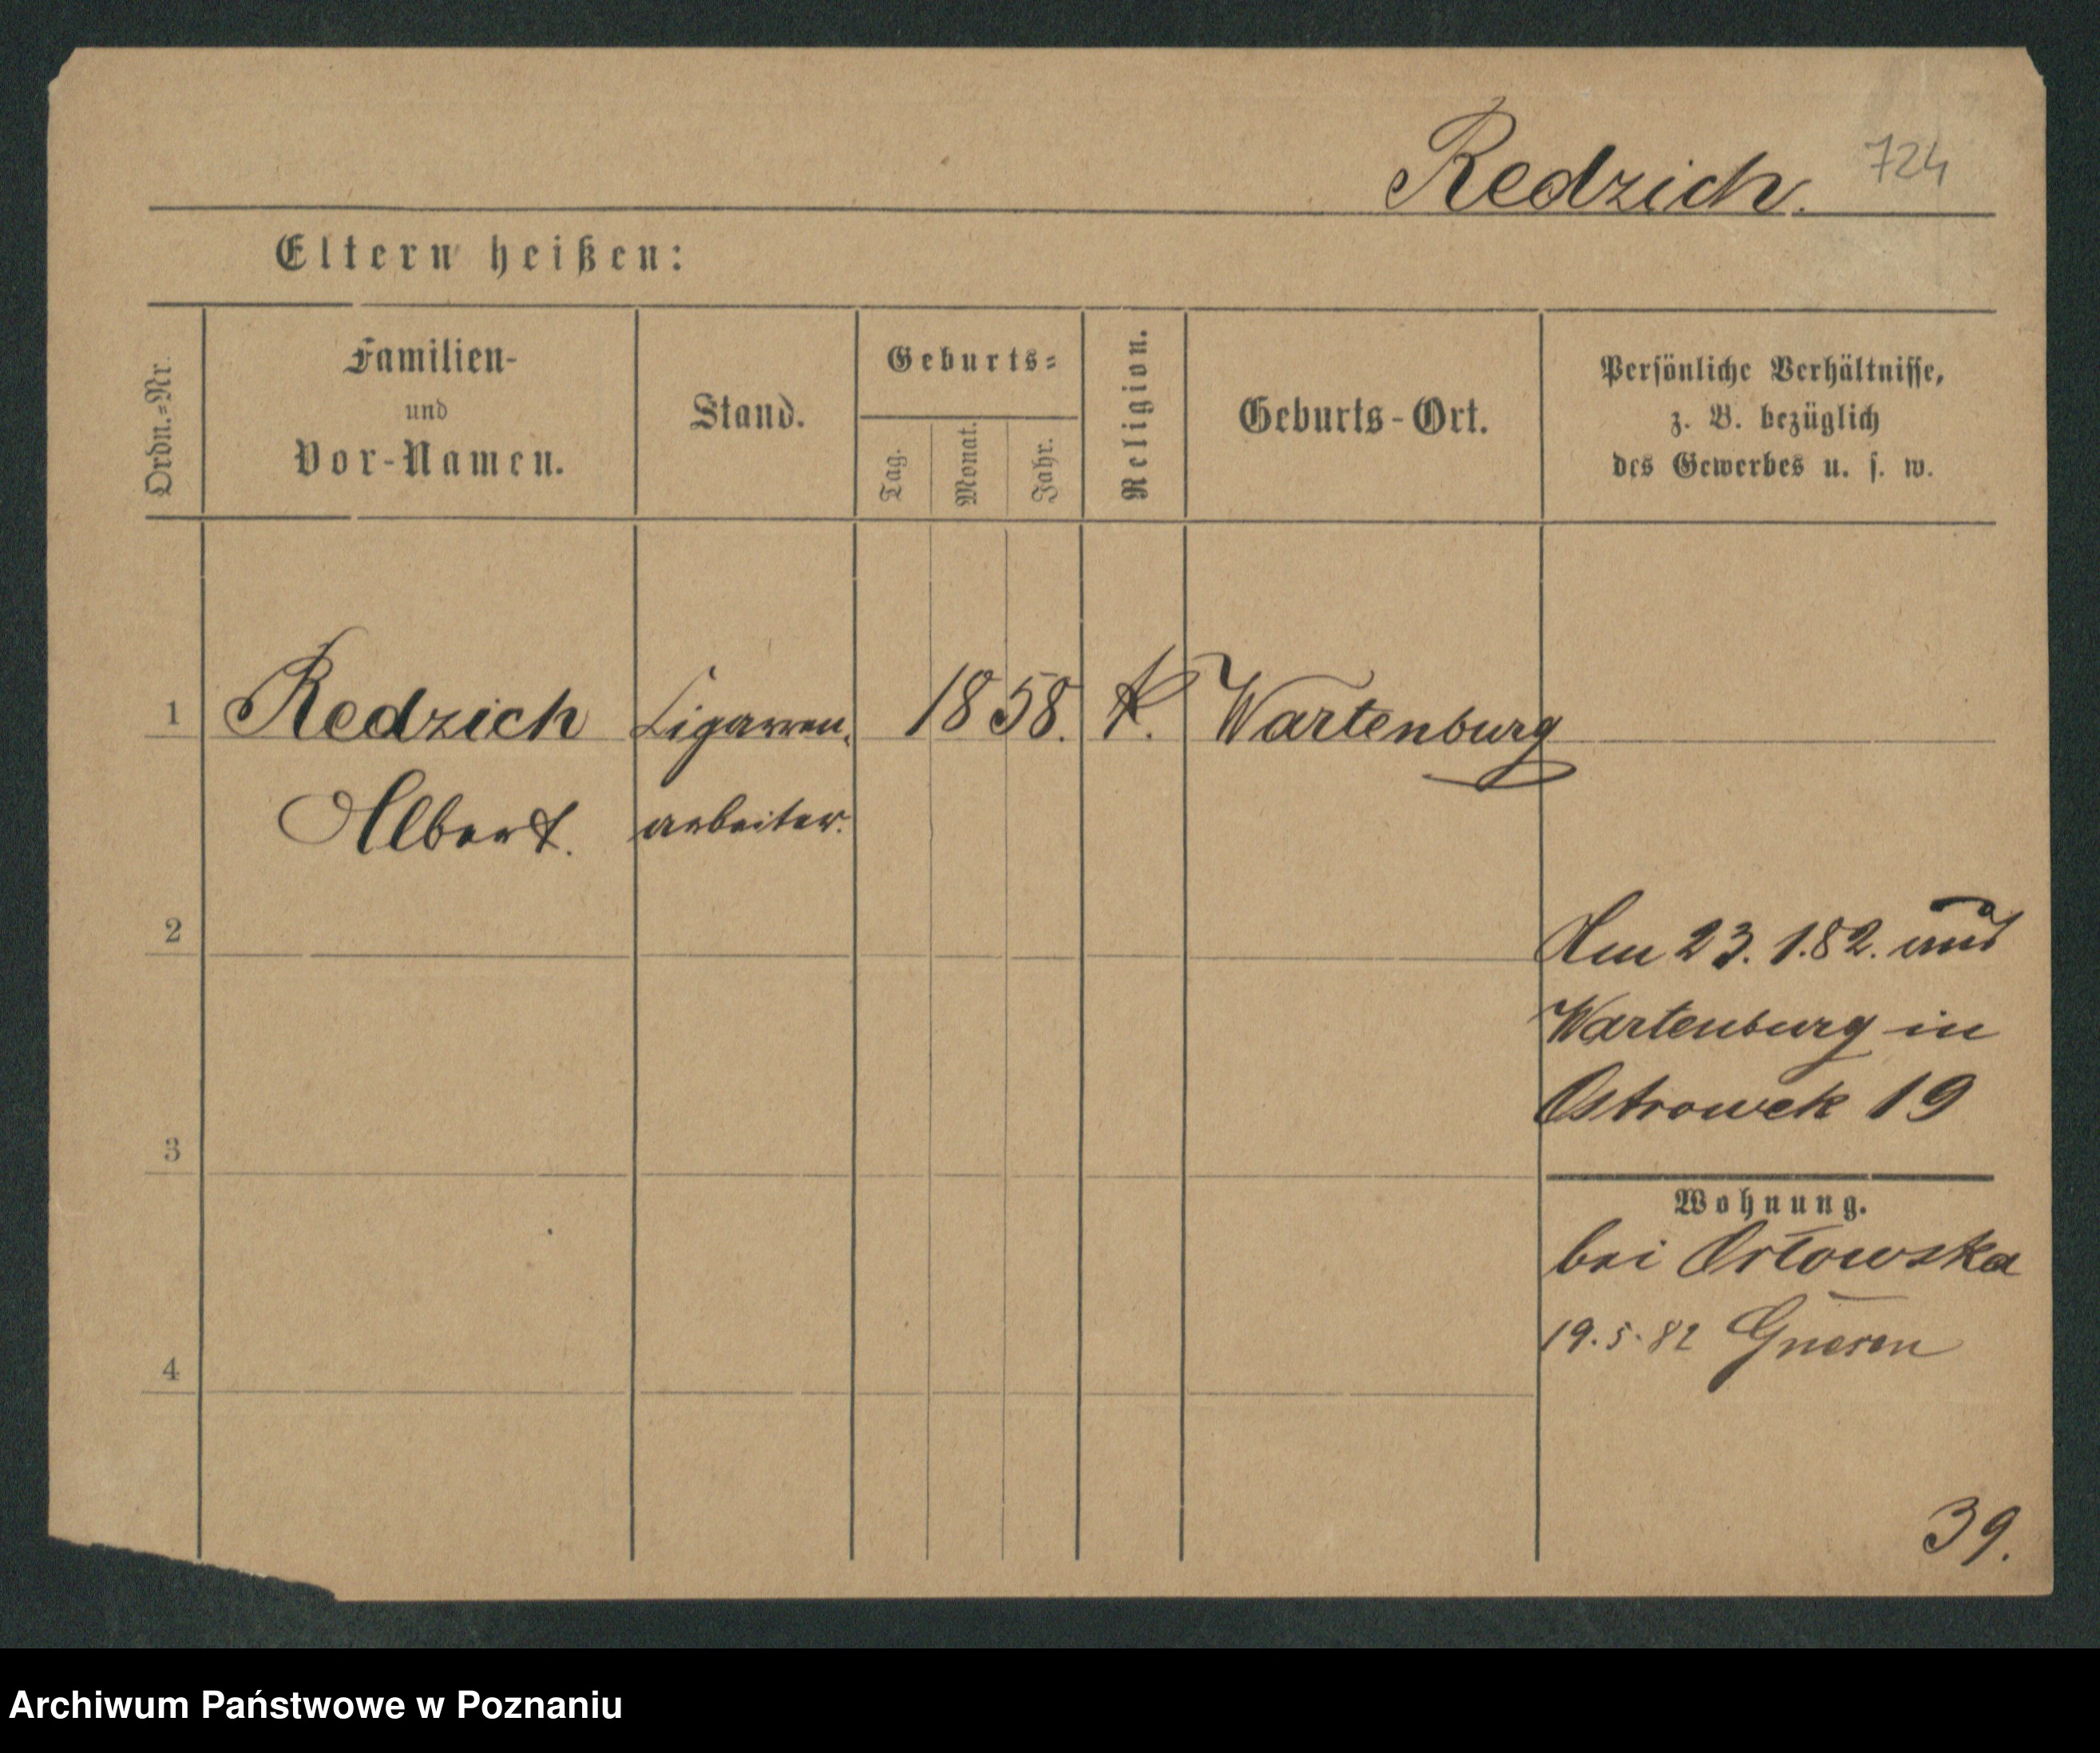 Redzich. 724
Eltern heißen:
Ordn.=Nr.
Familien-
und
Vor-Namen.
Stand.
Geburts=
Tag.
Monat.
Jahr.
Religion.
Geburts-Ort.
Persönliche Verhältnisse,
z. B. bezüglich
des Gewerbes u. s. w.
1 Redzich Zigarren, 1858. K. Wartenburg
Albert. arbeiter.
2
Am 23.1.82. aus
Wartenburg in
Ostrowek 19
3
Wohnung.
bei Orłowska
19.5.82 Gnesen
4
39.
Archiwum Państwowe w Poznaniu